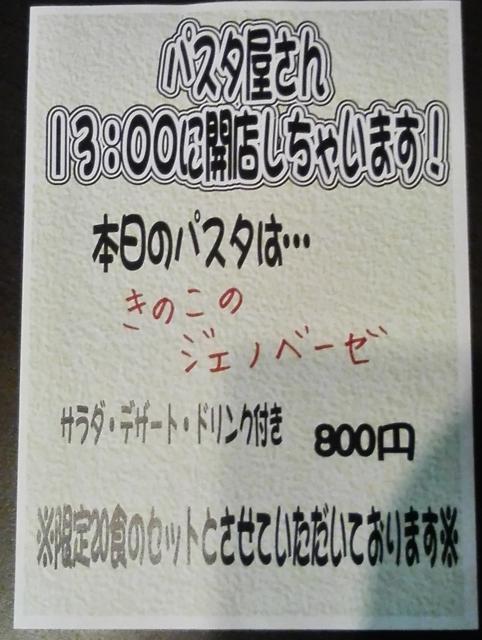 パスタ屋さん
13:00に開店しちゃいます!
本日のパスタは…
きのこの
ジェノベーゼ
サラダ・デザート・ドリンク付き 800円
※限定20食のセットとさせていただいております※